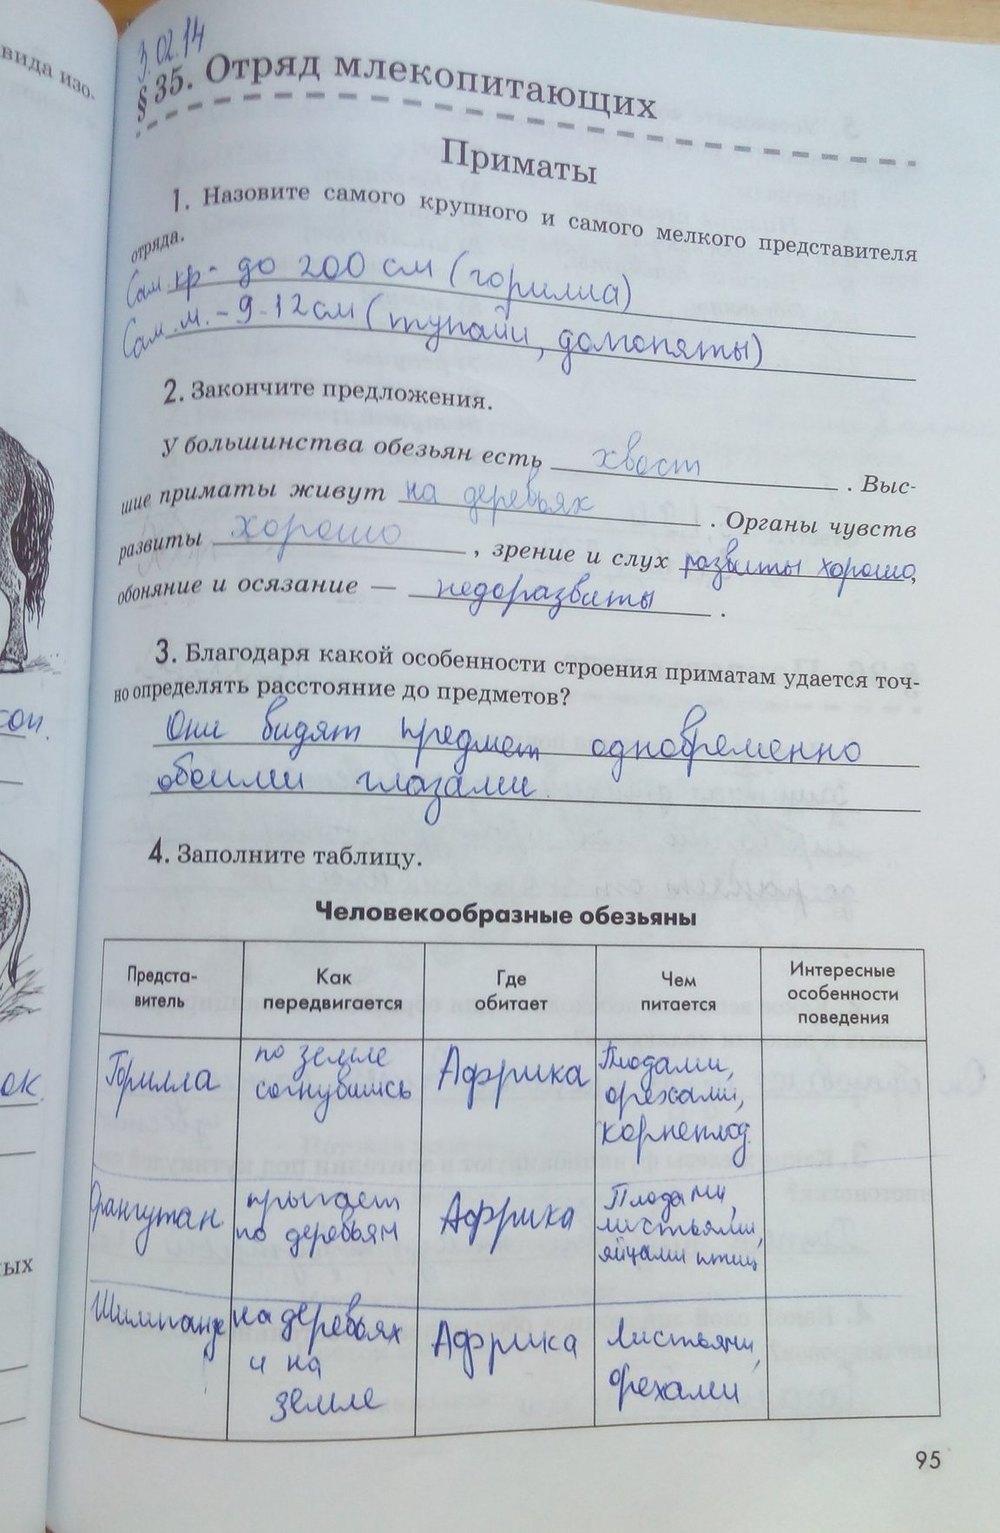 вида изо-
3.02.14
§ 35. Отряд млекопитающих
Приматы
1. Назовите самого крупного и самого мелкого представителя
отряда.
Сам. кр - до 200 см (горилла)
Сам. м. - 9-12 см (тупайи, долгопяты)
2. Закончите предложения.
У большинства обезьян есть хвост . Выс-
шие приматы живут на деревьях . Органы чувств
развиты хорошо , зрение и слух развиты хорошо,
обоняние и осязание — недоразвиты .
3. Благодаря какой особенности строения приматам удается точ-
но определять расстояние до предметов?
Они видят предмет одновременно
обоими глазами
4. Заполните таблицу.
Человекообразные обезьяны
Предста-
витель
Как
передвигается
Где
обитает
Чем
питается
Интересные
особенности
поведения
Горилла
по земле
согнувшись
Африка
Плодами,
орехами,
корнеплод.
Орангутан
прыгает
по деревьям
Африка
Плодами,
листьями,
яйцами птиц
Шимпанзе
на деревьях
и на
земле
Африка
Листьями,
орехами
95
ок.
ных